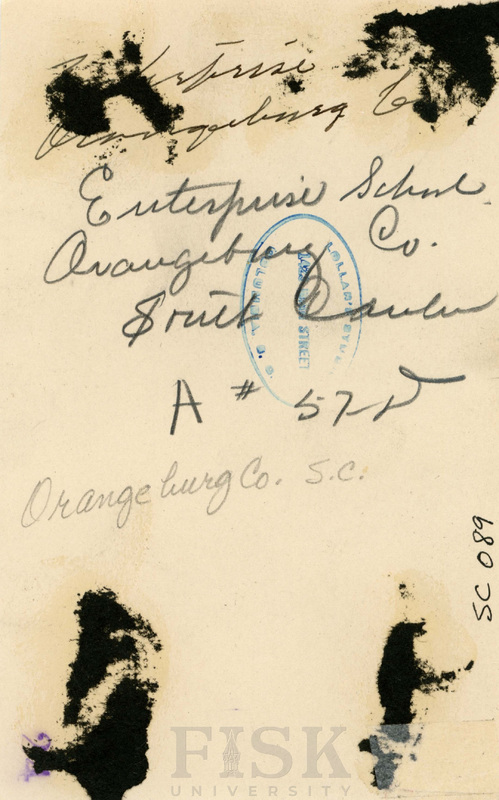 Enterprise
Orangeburg Co
Enterprise School
Orangeburg Co.
South Carolin
A # 57-D
Orangeburg Co. S.C.
SC 089
STREET
FISK
UNIVERSITY